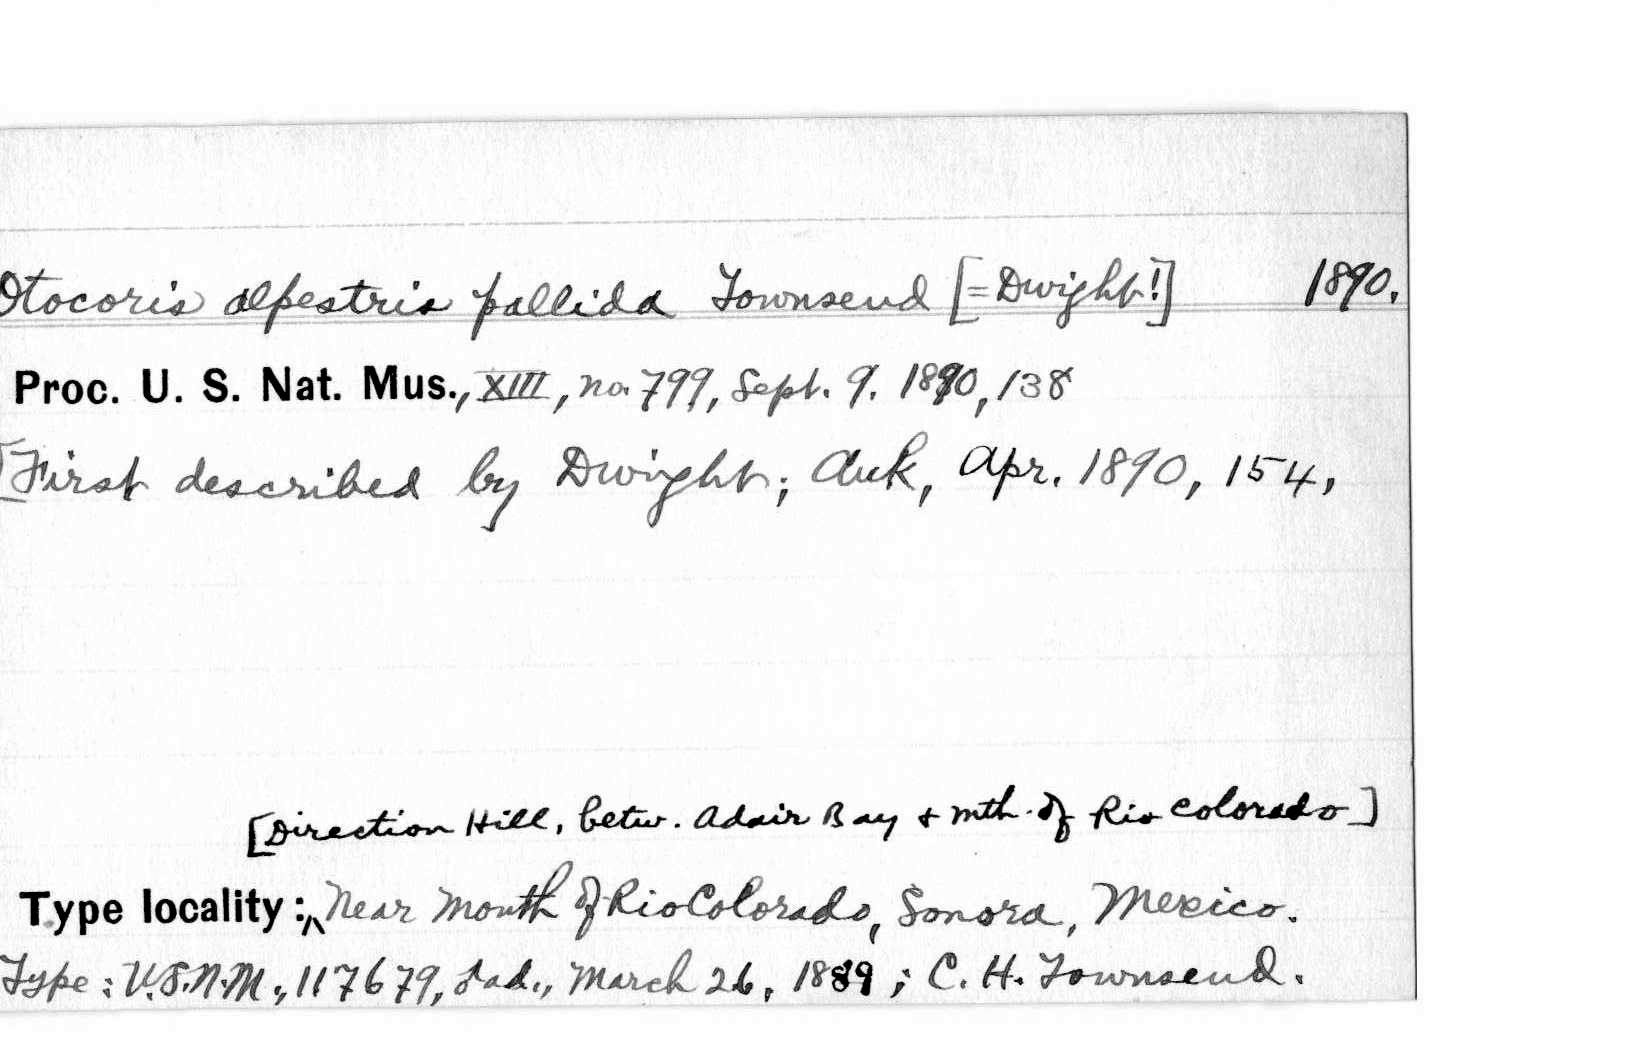 Otocoris alpestris pallida Townsend [=Dwight!] 1890.
Proc. U. S. Nat. Mus., XIII, no. 799, Sept. 9. 1890, 138
[First described by Dwight; Auk, Apr. 1890, 154,
[Direction Hill, betw. Adair Bay & mth. of Rio Colorado]
Type locality: ^ Near Mouth of Rio Colorado, Sonora, Mexico.
Type: U.S.N.M., 117679, ad., March 26, 1889; C. H. Townsend.